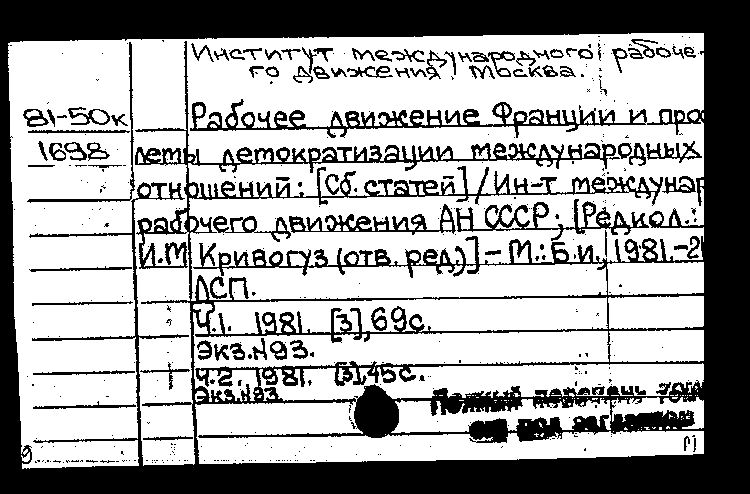 Институт международного рабоче-
го движения. Москва.
81-50к Рабочее движение Франции и про
1698 леты детократизации международных
отношений: [Сб. статей] / Ин-т междунар
рабочего движения АН СССР; [Редкол.:
И.М Кривогуз (отв. ред.)] - М.: Б.и., 1981.-2
ЛСП.
Ч.1. 1981. [3], 69с.
Экз.N93.
Ч.2. 1981. [3], 45с.
Экз.N93
Полный перечень томо
см под заглавием